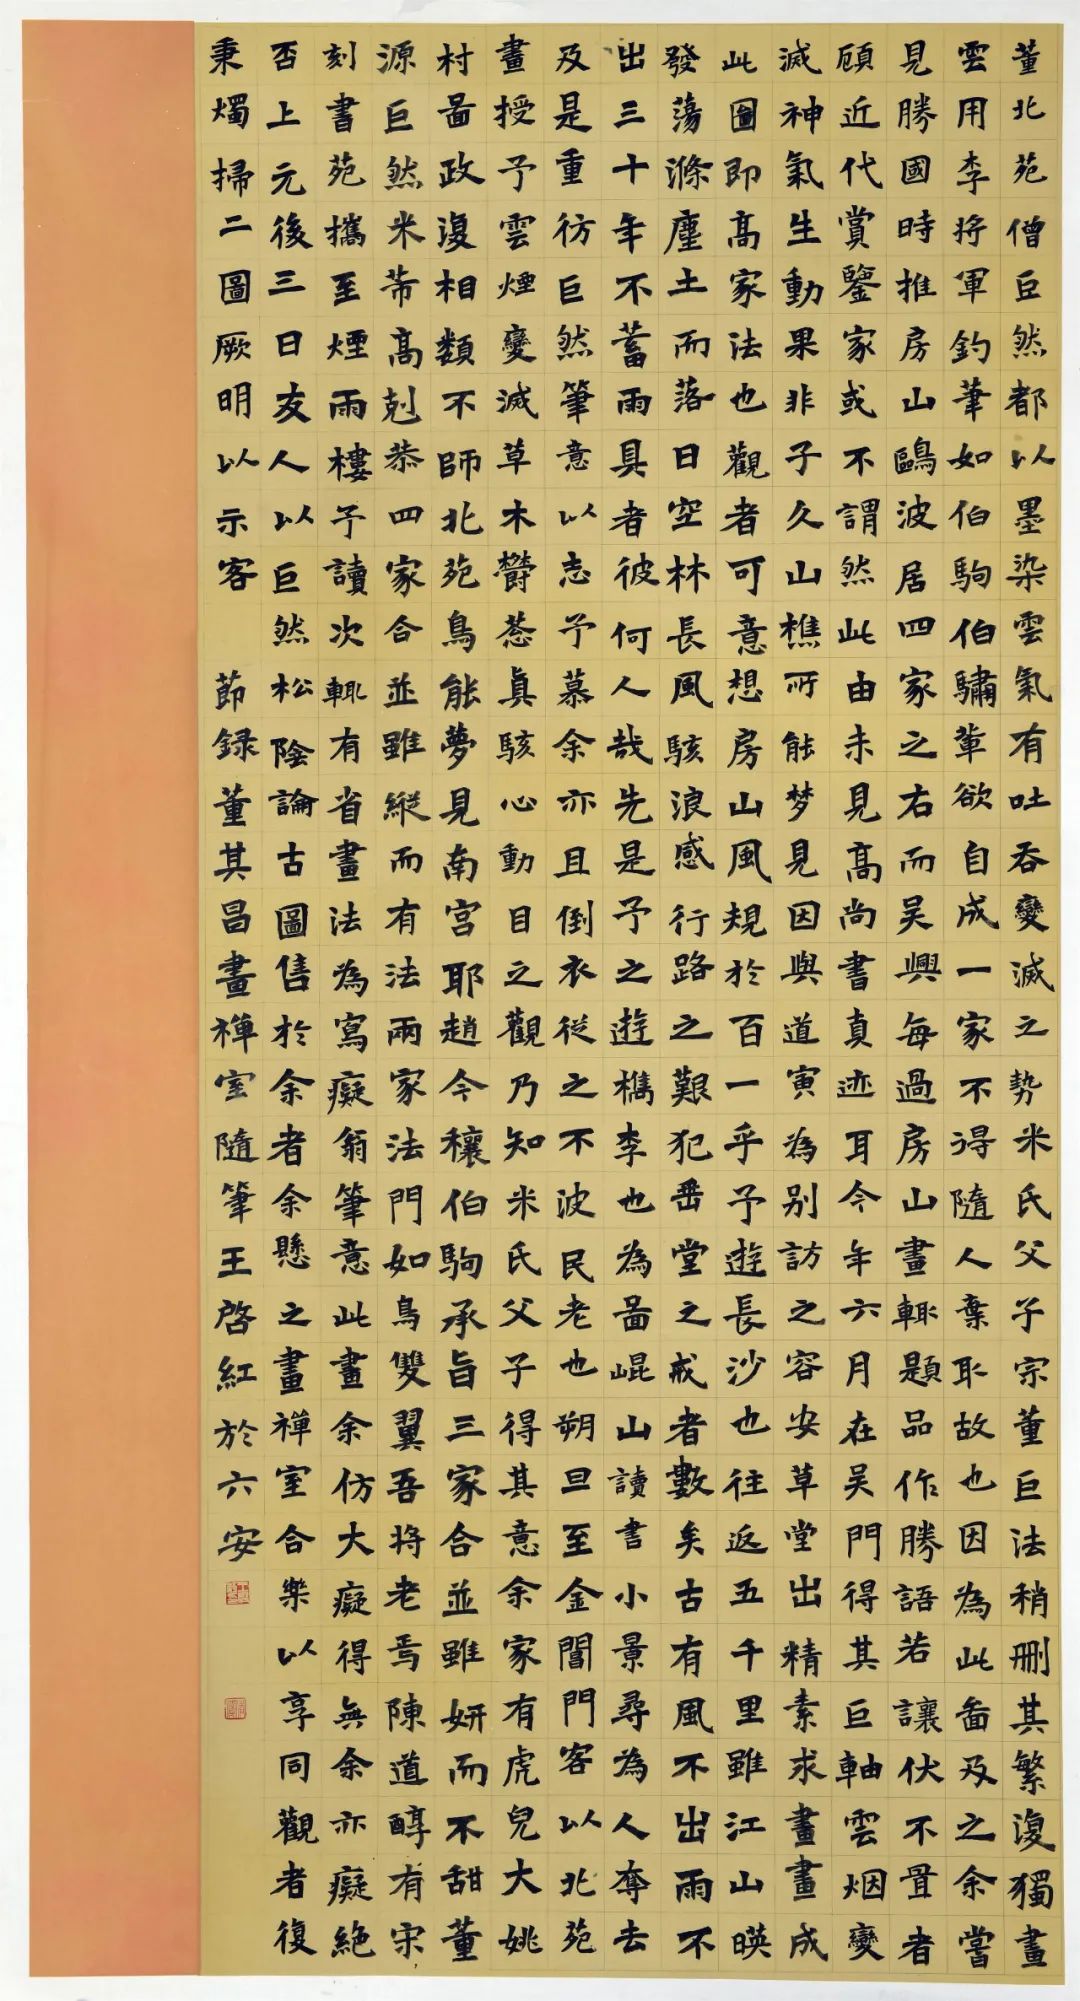 董北苑僧巨然都以墨染雲氣有吐吞變滅之勢米氏父子宗董巨法稍刪其繁復獨畫
雲用李將軍釣筆如伯駒伯驌輩欲自成一家不得隨人棄取故也因為此啚及之余嘗
見勝國時推房山鷗波居四家之右而吴興每過房山畫輒題品作勝語若讓伏不置者
顧近代賞鑒家或不謂然此由未見高尚書真迹耳今年六月在吴門得其巨軸雲烟變
滅神氣生動果非子久山樵所能梦見因與道寅為别訪之容安草堂出精素求畫畫成
此圖即高家法也觀者可意想房山風規於百一乎予遊長沙也往返五千里雖江山暎
發蕩滌塵土而落日空林長風駭浪感行路之艱犯垂堂之戒者數矣古有風不出雨不
出三十年不蓄雨具者彼何人哉先是予之遊檇李也為啚崐山讀書小景尋為人奪去
及是重彷巨然筆意以志予慕余亦且倒衣從之不波民老也朔旦至金閶門客以北苑
畫授予雲煙變滅草木欝葱真駭心動目之觀乃知米氏父子得其意余家有虎兒大姚
村啚政復相類不師北苑鳥能夢見南宫耶趙令穰伯駒承旨三家合並雖妍而不甜董
源巨然米芾高剋恭四家合並雖縱而有法兩家法門如鳥雙翼吾將老焉陳道醇有宋
刻書苑攜至煙雨樓予讀次輒有省畫法為寫癡翁筆意此畫余仿大癡得無余亦癡絶
否上元後三日友人以巨然松陰論古圖售於余者余懸之畫禪室合樂以享同觀者復
秉燭掃二圖厥明以示客 節録董其昌畫禪室隨筆王啓紅於六安